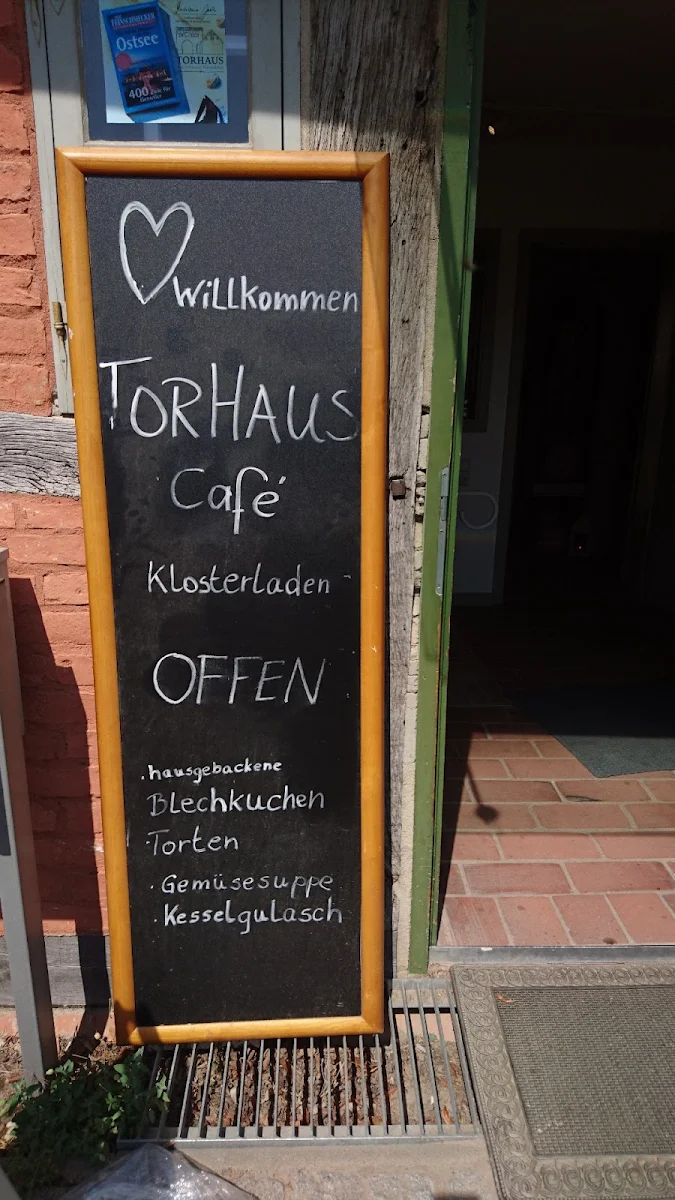 FEINSCHMECKER
Ostsee
400
TORHAUS
Willkommen
TORHAUS
Café
Klosterladen
OFFEN
. hausgebackene
Blechkuchen
. Torten
. Gemüsesuppe
. Kesselgulasch